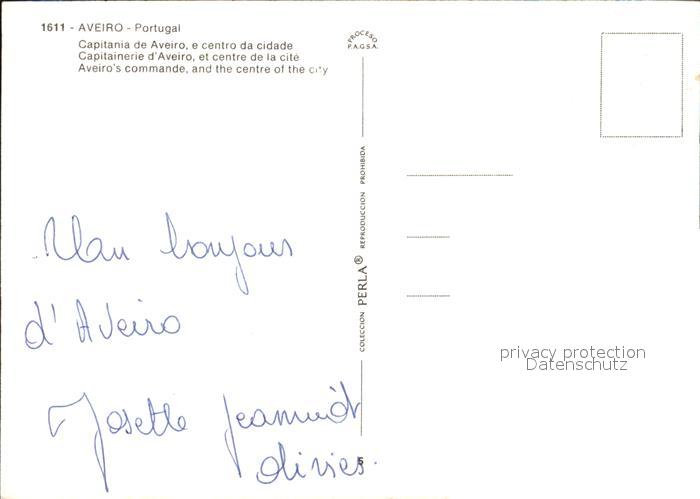 1611 - AVEIRO - Portugal
Capitania de Aveiro, e centro da cidade
Capitainerie d'Aveiro, et centre de la cité
Aveiro's commande, and the centre of the city
PROCESO
P.A.G.S.A.
COLECCION PERLA® REPRODUCCION PROHIBIDA
bonjour
d'Aveiro
privacy protection
Datenschutz
Josette
5